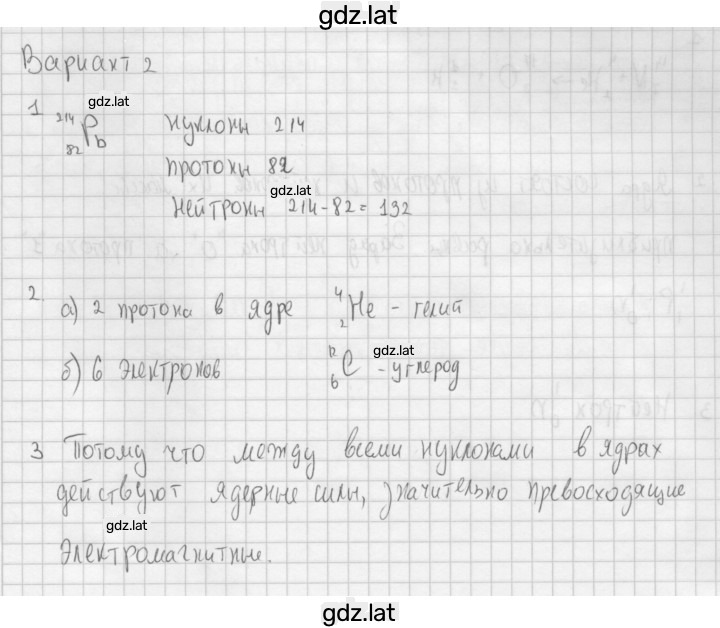 gdz.lat
Вариант 2
gdz.lat
1 ²¹⁴₈₂Pb нуклоны 214
протоны 82
gdz.lat
нейтроны 214-82= 132
2. а) 2 протона в ядре ⁴₂He - гелий
gdz.lat
б) 6 электронов ¹²₆C - углерод
3 Потому что между всеми нуклонами в ядрах
действуют ядерные силы, значительно превосходящие
gdz.lat
электромагнитные.
gdz.lat